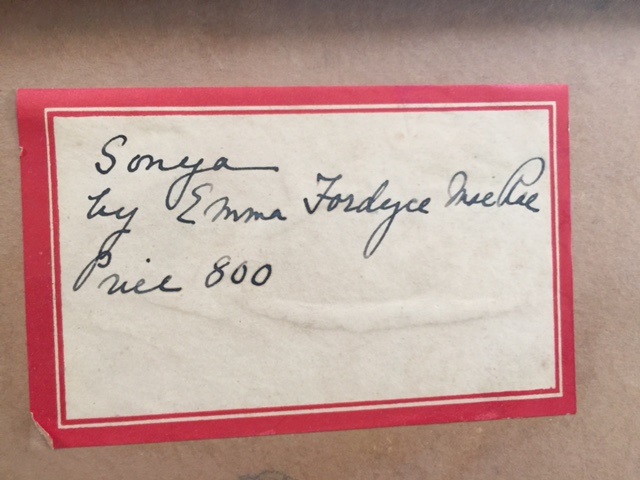 Sonya
by Emma Fordyce MacRae
Price 800